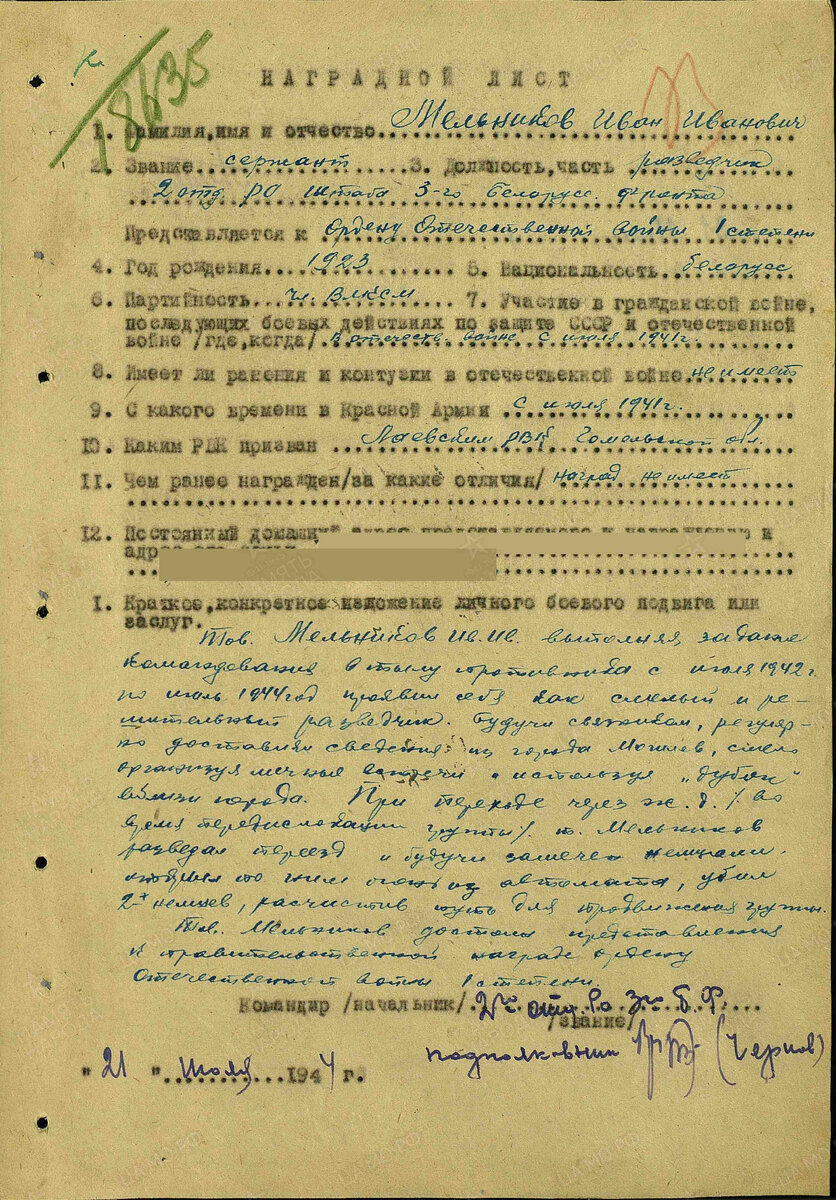 18635
НАГРАДНОЙ ЛИСТ
1. Фамилия,имя и отчество Мельников Иван Иванович
2. Звание сержант 3. Должность,часть разведчик
2 отд РО штаба 3-го белорус. фронта
Представляется к Ордену Отечественной войны I степени
4. Год рождения 1923 5. Национальность белорусс
6. Партийность чл. ВЛКСМ 7. Участие в гражданской войне,
последующих боевых действиях по защите СССР и отечественной
войне /где,когда/ в отечеств. войне с июля 1941г.
8. Имеет ли ранения и контузии в отечественной войне не имеет
9. С какого времени в Красной Армии с июля 1941г.
10. Каким РВК призван Лоевским РВК Гомельской обл.
11. Чем ранее награжден/за какие отличия/ наград не имеет
12. Постоянный домашний адрес представляемого к награждению и
адрес его семьи
I. Краткое,конкретное изложение личного боевого подвига или
заслуг.
Тов. Мельников Ив.Ив. выполняя задание
командования в тылу противника с июля 1942г.
по июль 1944 год проявил себя как смелый и ре-
шительный разведчик. Будучи связником, регуляр-
но доставлял сведения из города Могилев, смело
организуя личные встречи и используя „дубок"
вблизи города. При переходе через ж.д. /во
время передислокации группы/ т. Мельников
разведал переезд и будучи замечен немцами.
открыл по ним огонь из автомата, убил
2х немцев, расчистив путь для продвижения группы.
Тов. Мельников достоин представления
к правительственной награде ордену
Отечественной войны I степени
Командир /начальник/ 2го отд. Ро 3го б.Ф.
/звание/
подполковник (Чернов)
"21" Июля 1944 г.